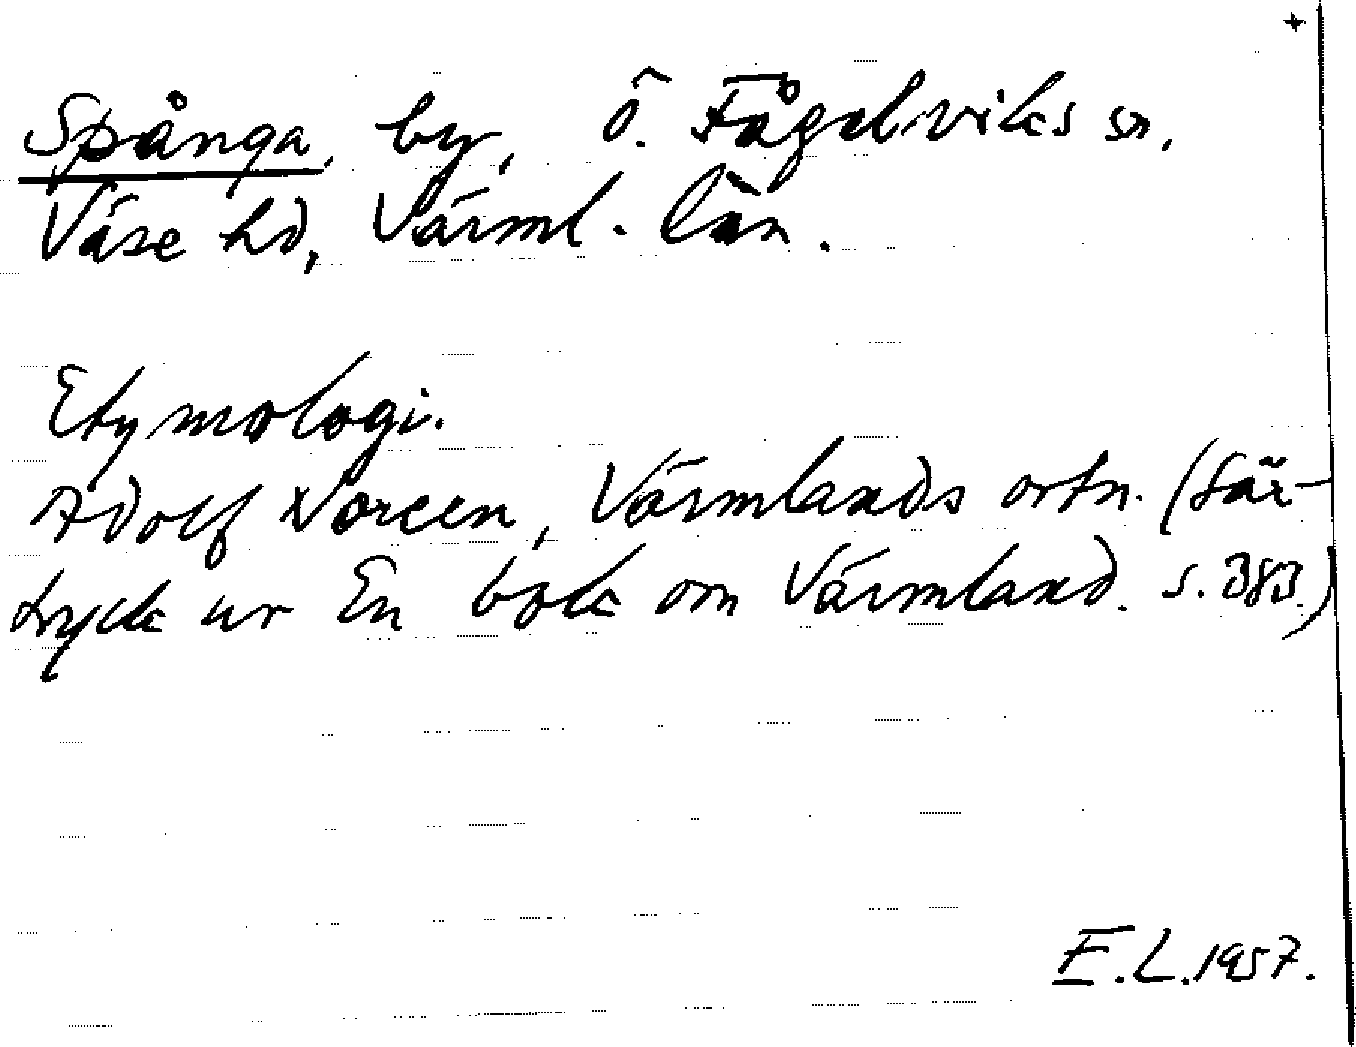 +
Spånga, by, Ö. Fågelviks sn,
Väse hd, Värml. län.
Etymologi.
Adolf Noreen, Värmlands ortn. (Sär-
tryck ur En bok om Värmland. s. 383.)
E.L. 1957.